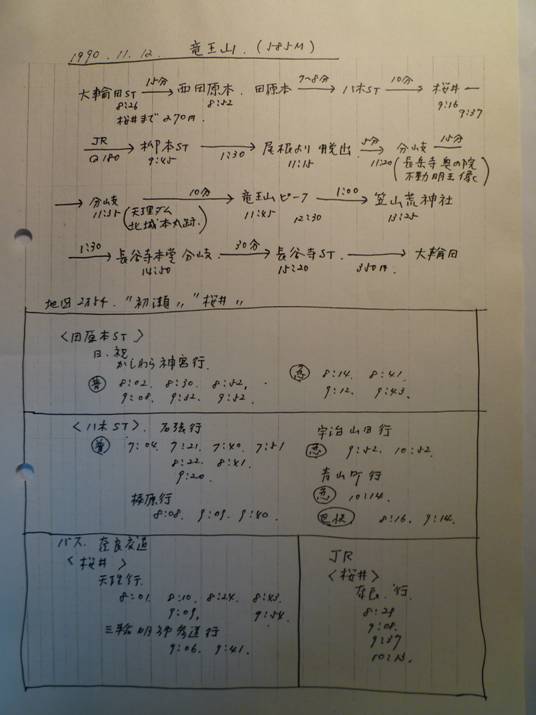 1990.11.12. 竜王山.(585M)
大輪田ST 15分→ 西田原本. 田原本 7~8分→ 八木ST 10分→ 桜井
8:26 8:52 9:16 9:37
桜井まで270円.
JR → 柳本ST 1:30→ 尾根より脱出 5分→ 分岐 15分
180 9:45 11:15 11:20 (長岳寺奥の院 不動明王像)
→ 分岐 10分→ 竜王山ピーク 1:00→ 笠山荒神社
11:35 (天理ダム 北城本丸跡.) 11:45 12:30 13:25
1:30→ 長谷寺本堂分岐. 30分→ 長谷寺ST. → 大輪田
14:50 15:20 350円.
地図 2万5千. "初瀬" "桜井"
<田原本ST>
日、祝
かしわら神宮行.
普 8:02. 8:30. 8:52.
9:08. 9:32. 9:52.
急 8:14. 8:41.
9:12. 9:43.
<八木ST>. 名張行
普 7:04. 7:21. 7:40. 7:51
8:22. 8:41.
9:20.
榛原行
8:08. 9:09. 9:40.
宇治山田行
急 9:52. 10:52.
青山町行
急 10:14.
8:16. 9:14.
バス. 奈良交通
<桜井>
天理行.
8:01. 8:10. 8:24. 8:43.
9:09. 9:54.
三輪明神参道行
9:06. 9:41.
JR
<桜井>
奈良行.
9:08.
9:37